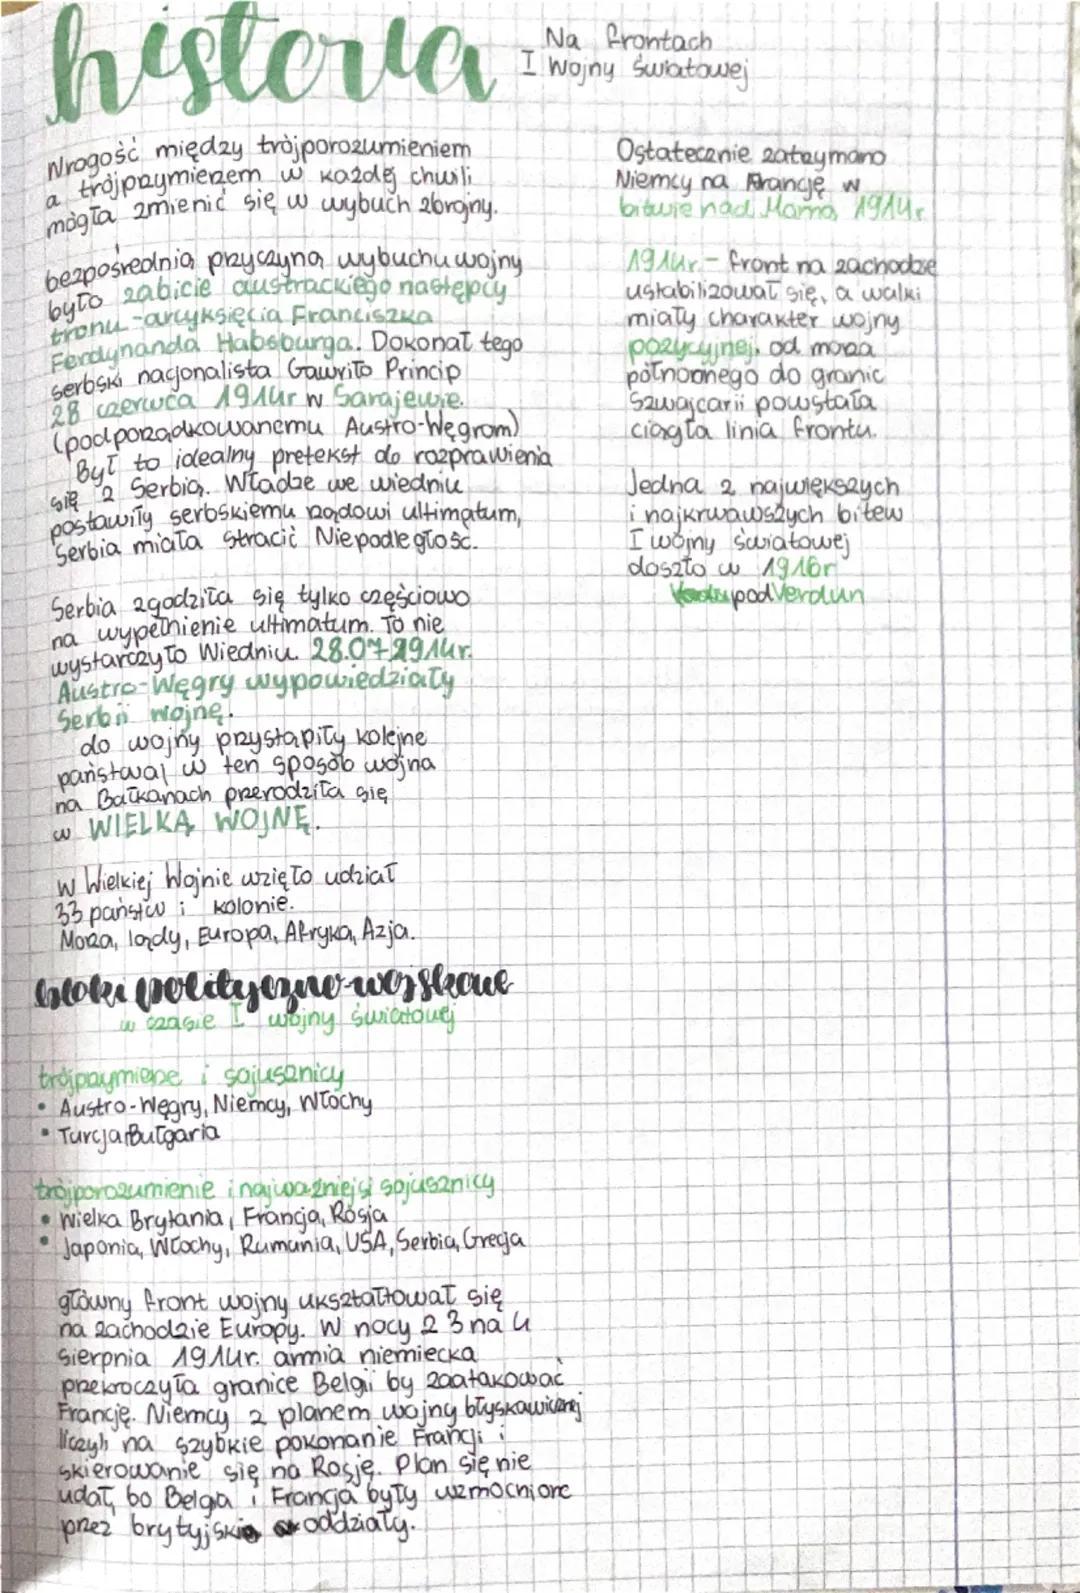 historia
Na frontach
I Wojny Światowej
Wrogość między trójporozumieniem
a trójprzymierzem w każdej chwili
mogła zmienić się w wybuch zbrojny.
bezpośrednią przyczyną wybuchu wojny
było zabicie austrackiego następcy
tronu - arcyksięcia Franciszka
Ferdynanda Habsburga. Dokonał tego
serbski nacjonalista Gawriło Princip
28 czerwca 1914r w Sarajewie.
(podporządkowanemu Austro-Węgrom)
Był to idealny pretekst do rozprawienia
się z Serbią. Władze we wiedniu
postawiły serbskiemu rządowi ultimatum,
Serbia miała stracić Niepodległość.
Serbia zgodziła się tylko częściowo
na wypełnienie ultimatum. To nie
wystarczyło Wiedniu. 28.07.1914r.
Austro-Węgry wypowiedziały
Serbii wojnę.
do wojny przystąpiły kolejne
państwa, w ten sposób wojna
na Bałkanach przerodziła się
w WIELKĄ WOJNĘ.
W Wielkiej Wojnie wzięło udział
33 państw i kolonie.
Morza, lądy, Europa, Afryka, Azja.
bloki polityczno-wojskowe
w czasie I wojny światowej
trójprzymierze i sojusznicy
• Austro-Węgry, Niemcy, Włochy
• Turcja, Bułgaria
trójporozumienie i najważniejsi sojusznicy
• Wielka Brytania, Francja, Rosja
• Japonia, Włochy, Rumunia, USA, Serbia, Grecja
główny front wojny ukształtował się
na zachodzie Europy. W nocy z 3 na 4
sierpnia 1914r. armia niemiecka
przekroczyła granice Belgii by zaatakować
Francję. Niemcy z planem wojny błyskawicznej
liczyli na szybkie pokonanie Francji i
skierowanie się na Rosję. Plan się nie
udał, bo Belgia i Francja były wzmocnione
przez brytyjskie oddziały.
Ostatecznie zatrzymano
Niemcy na Francję w
bitwie nad Marną 1914r
1914r. - front na zachodzie
ustabilizował się, a walki
miały charakter wojny
pozycyjnej, od morza
północnego do granic
Szwajcarii powstała
ciągła linia frontu.
Jedna z największych
i najkrwawszych bitew
I wojny światowej
doszło w 1916r
pod Verdun